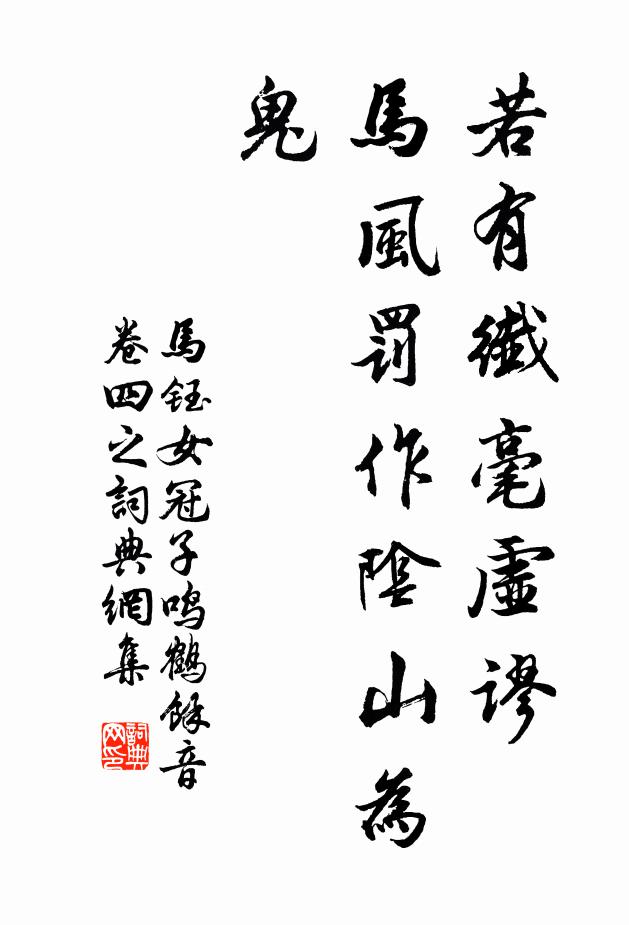 若有纖毫虛謬
馬風罰作陰山為
鬼
馬鈺女冠子鳴鶴餘音
卷四之詞典網集
詞典網印